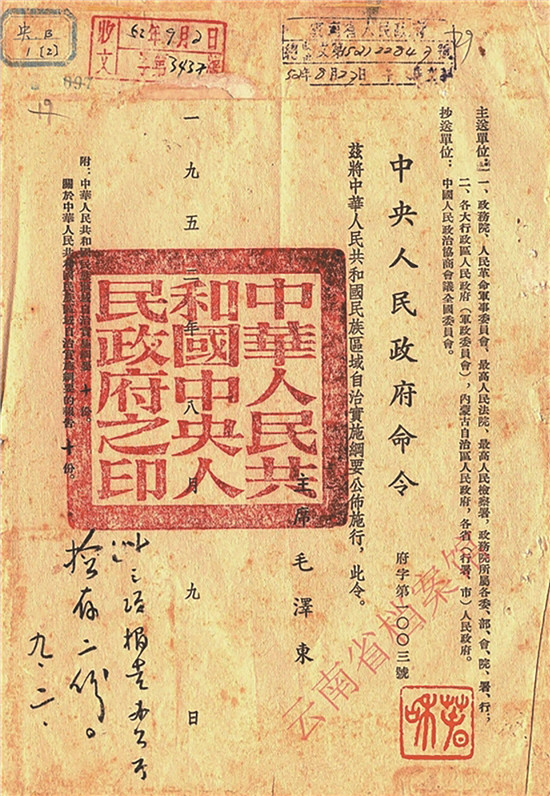 主送單位：一、政務院、人民革命軍事委員會、最高人民法院、最高人民檢察署，政務院所屬各委、部、會、院、署、行；
二、各大行政區人民政府（軍政委員會），內蒙古自治區人民政府，各省（行署、市）人民政府。
抄送單位：中國人民政治協商會議全國委員會。
中央人民政府命令
府字第一〇〇三號
茲將中華人民共和國民族區域自治實施綱要公佈施行，此令。
主席 毛澤東
一九五二年八月九日
附：中華人民共和國 十份。
關於中華人民共 治實施綱要的報告 十份。
中華人民共
和國中央人
民政府之印
收文
52年9月2日
字第3437號
雲南省人民政府
52年8月27日
央
19
檢存二份。
九.二.
云南省档案馆